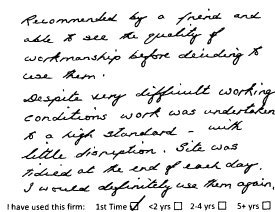 Recommended by a friend and
able to see the quality of
workmanship before deciding to
use them.
Despite very difficult working
conditions work was undertaken
to a high standard - with
little disruption. Site was
tidied at the end of each day.
I would definitely use them again.
I have used this firm: 1st Time ☑ <2 yrs ☐ 2-4 yrs ☐ 5+ yrs ☐